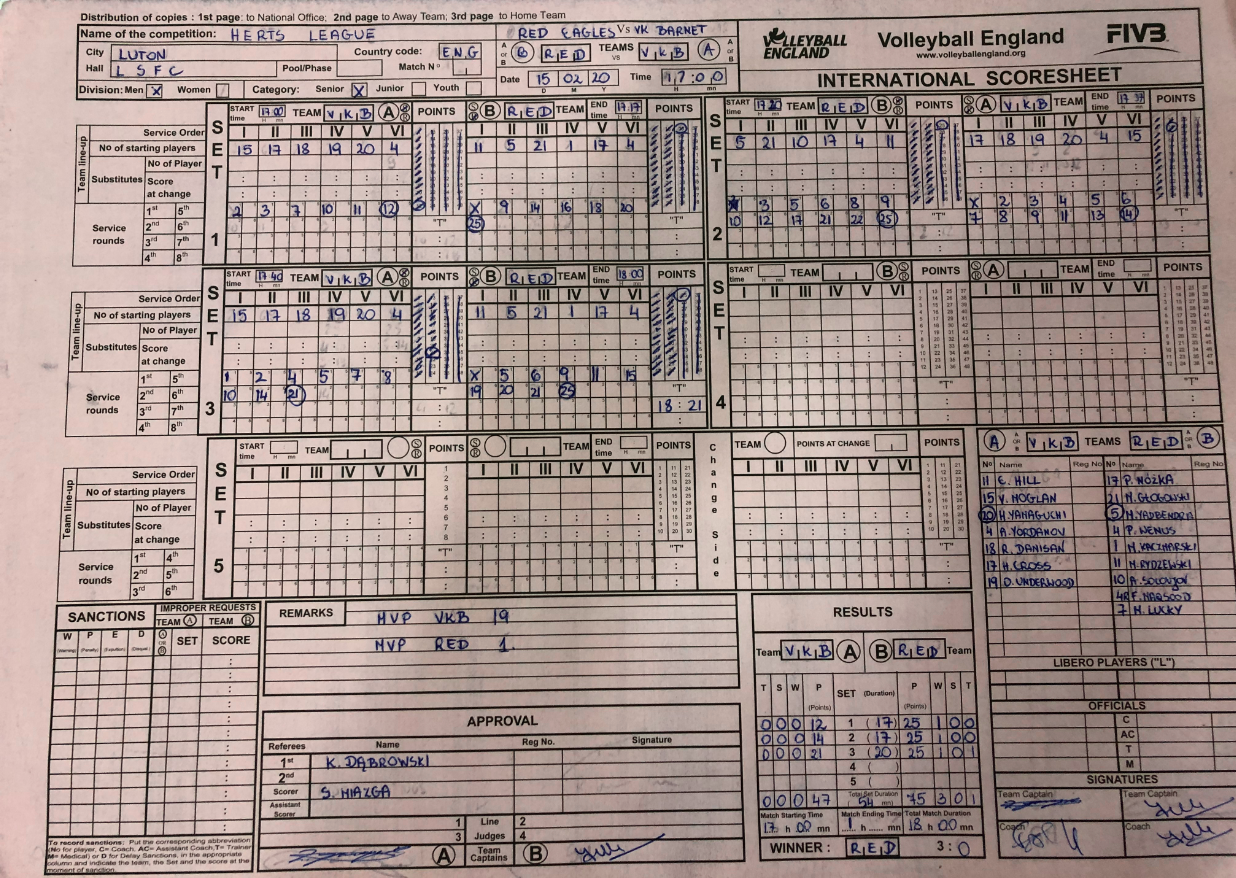 Distribution of copies : 1st page: to National Office; 2nd page to Away Team; 3rd page to Home Team
Name of the competition: HERTS LEAGUE
RED EAGLES Vs VK BARNET
City LUTON Country code: ENG
Hall LSFC Pool/Phase Match Nº
A or B B RED TEAMS vs VKB A A or B
Date 15 02 20 Time 17:00
D M Y H mn
Division: Men X Women Category: Senior X Junior Youth
VOLLEYBALL ENGLAND
Volleyball England
www.volleyballengland.org
FIVB
INTERNATIONAL SCORESHEET
SET 1
START time 17 00 TEAM VKB A POINTS
B RED TEAM END time 17 17 POINTS
Service Order I II III IV V VI I II III IV V VI
No of starting players 15 17 18 19 20 4 11 5 21 1 17 4
Team line-up
Substitutes No of Player
Score at change
Service rounds
1st 5th 2 3 7 10 11 12 X 9 14 16 18 20
2nd 6th 25
3rd 7th
4th 8th
"T"
SET 2
START time 17 20 TEAM RED B POINTS
A VKB TEAM END time 17 37 POINTS
I II III IV V VI I II III IV V VI
5 21 10 17 4 11 17 18 19 20 4 15
3 5 6 8 9 X 2 3 4 5 6
10 12 17 21 22 25 7 8 9 11 13 14
"T"
SET 3
START time 17 40 TEAM VKB A POINTS
B RED TEAM END time 18 00 POINTS
Service Order I II III IV V VI I II III IV V VI
No of starting players 15 17 18 19 20 4 11 5 21 1 17 4
Team line-up
Substitutes No of Player
Score at change
Service rounds
1st 5th 1 2 4 5 7 8 X 5 6 9 11 15
2nd 6th 10 14 21 19 20 21 25
3rd 7th
4th 8th
"T"
18 : 21
SET 4
START time TEAM B POINTS
A TEAM END time POINTS
I II III IV V VI I II III IV V VI
"T"
SET 5
START time TEAM POINTS
TEAM END time POINTS
Change Side
TEAM POINTS AT CHANGE POINTS
Service Order I II III IV V VI I II III IV V VI I II III IV V VI
No of starting players
Team line-up
Substitutes No of Player
Score at change
Service rounds
1st 4th
2nd 5th
3rd 6th
"T"
A A or B VKB TEAMS RED A or B B
Nº Name Reg No Nº Name Reg No
11 E. HILL 17 P. NOZKA
15 V. MOGLAN 21 M. GŁOGOWSKI
20 H. YANAGUCHI 5
4 A. YORDANOV 4 P. WENUS
18 R. DANISAN 1 M. KACZMARSKI
17 H. CROSS 11 M. RYDZEWSKI
19 D. UNDERWOOD 10 A. SOLOVJOV
F. MAQSOOD
7 M. LUCKY
LIBERO PLAYERS ("L")
OFFICIALS
C
AC
T
M
SIGNATURES
Team Captain Team Captain
Coach Coach
SANCTIONS
IMPROPER REQUESTS
TEAM A TEAM B
W P E D A OR B SET SCORE
(Warning) (Penalty) (Expulsion) (Disqual.)
To record sanctions: Put the corresponding abbreviation
(No for player, C= Coach, AC= Assistant Coach, T= Trainer
M= Medical) or D for Delay Sanctions, in the appropriate
column and indicate the team, the Set and the score at the
moment of sanction.
REMARKS
MVP VKB 19
MVP RED 1.
APPROVAL
Referees Name Reg No. Signature
1st K. DĄBROWSKI
2nd
Scorer S. MIAZGA
Assistant Scorer
1 Line 2
3 Judges 4
A Team Captains B
RESULTS
Team VKB A B RED Team
T S W P (Points) SET (Duration) P (Points) W S T
0 0 0 12 1 (17) 25 1 0 0
0 0 0 14 2 (17) 25 1 0 0
0 0 0 21 3 (20) 25 1 0 1
4 ( )
5 ( )
0 0 0 47 Total Set Duration (54 mn) 75 3 0 1
Match Starting Time Match Ending Time Total Match Duration
17 h 00 mn 1 h mn 18 h 00 mn
WINNER : RED 3 : 0